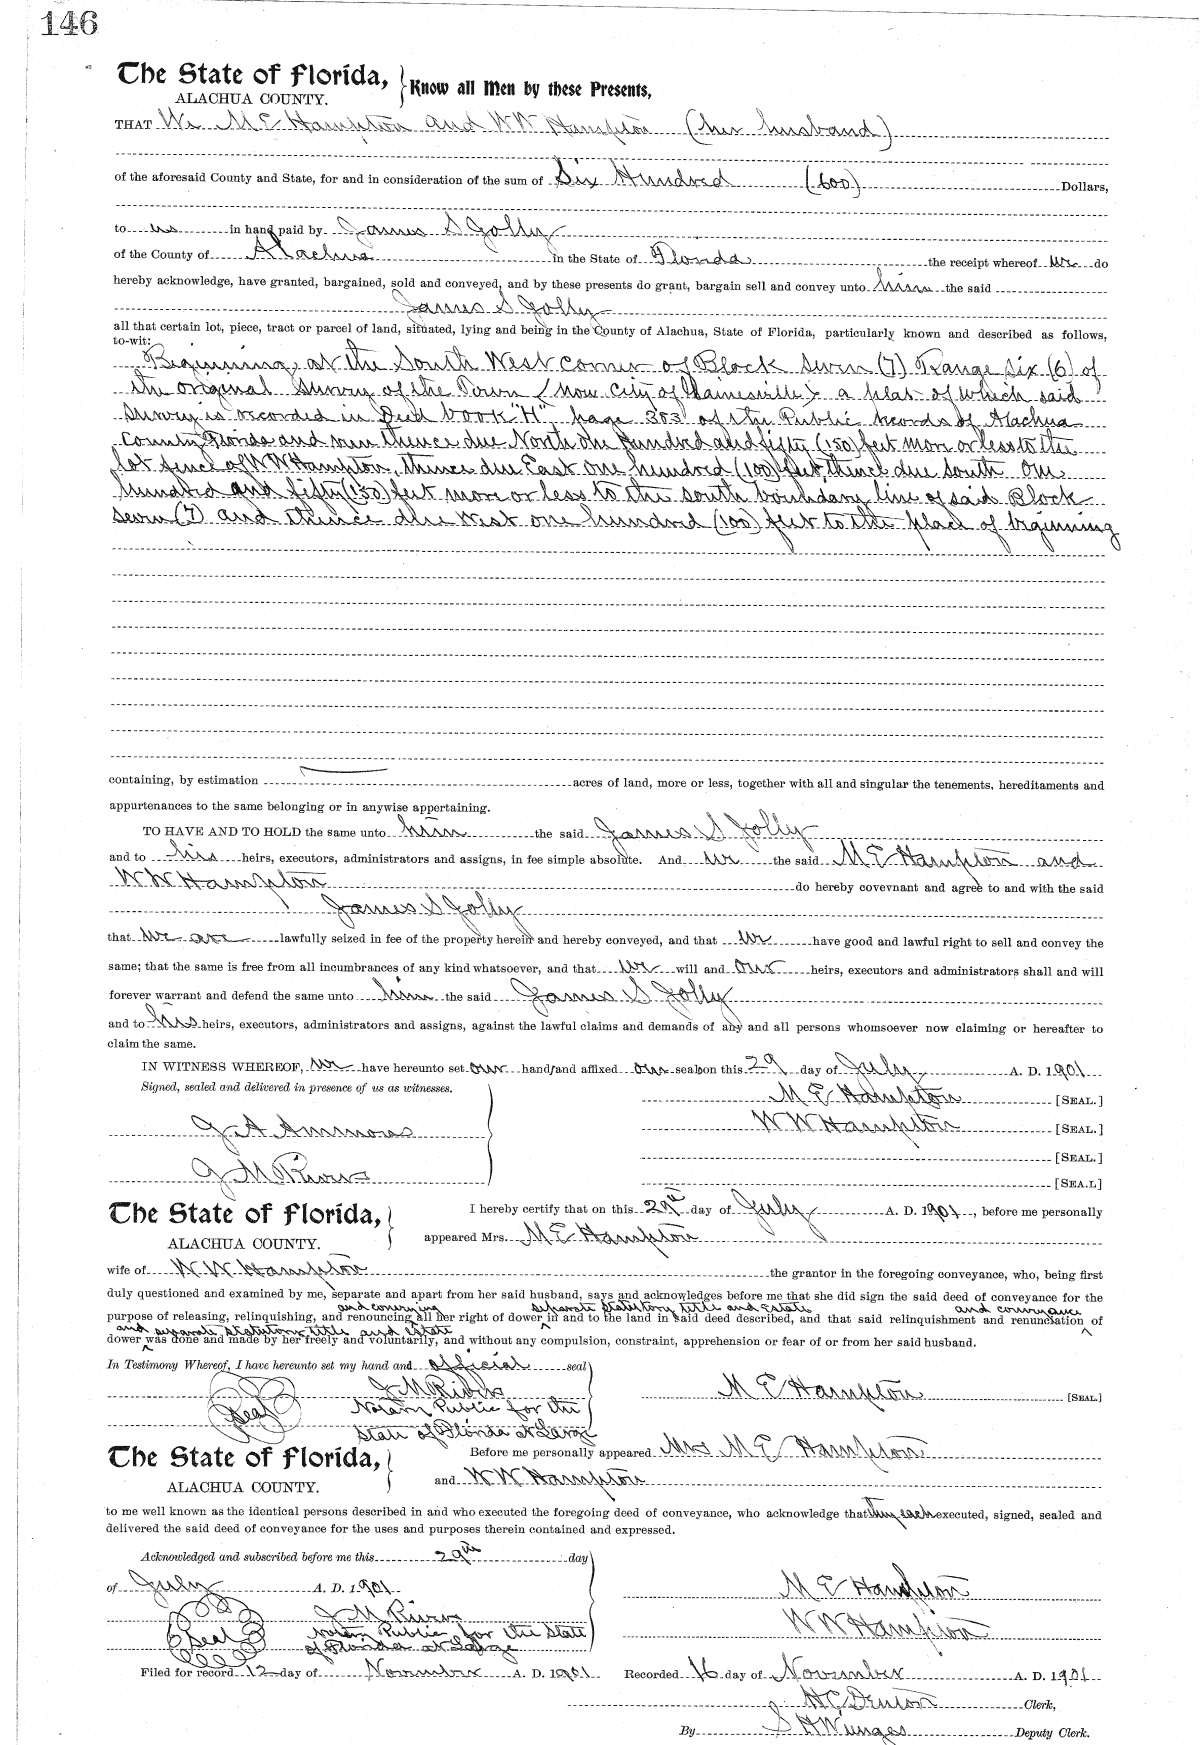 146
The State of Florida,
ALACHUA COUNTY.
Know all Men by these Presents,
THAT We M E Hampton and W W Hampton (her husband)
of the aforesaid County and State, for and in consideration of the sum of Six Hundred (600) Dollars,
to us in hand paid by James S Jolly
of the County of Alachua in the State of Florida the receipt whereof we do
hereby acknowledge, have granted, bargained, sold and conveyed, and by these presents do grant, bargain sell and convey unto him the said
James S Jolly
all that certain lot, piece, tract or parcel of land, situated, lying and being in the County of Alachua, State of Florida, particularly known and described as follows,
to-wit:
Beginning at the South West corner of Block seven (7) Range six (6) of
the original survey of the Town (now City of Gainesville) a plat of which said
survey is recorded in Deed book "H" page 383 of the Public records of Alachua
County Florida and run thence due North one hundred and fifty (150) feet more or less to the
lot fence of W W Hampton, thence due East one hundred (100) feet, thence due south one
hundred and fifty (150) feet more or less to the south boundary line of said Block
seven (7) and thence due West one hundred (100) feet to the place of beginning
containing, by estimation acres of land, more or less, together with all and singular the tenements, hereditaments and
appurtenances to the same belonging or in anywise appertaining.
TO HAVE AND TO HOLD the same unto him the said James S Jolly
and to his heirs, executors, administrators and assigns, in fee simple absolute. And we the said M E Hampton and
W W Hampton do hereby covevnant and agree to and with the said
James S Jolly
that we are lawfully seized in fee of the property herein and hereby conveyed, and that we have good and lawful right to sell and convey the
same; that the same is free from all incumbrances of any kind whatsoever, and that we will and our heirs, executors and administrators shall and will
forever warrant and defend the same unto him the said James S Jolly
and to his heirs, executors, administrators and assigns, against the lawful claims and demands of any and all persons whomsoever now claiming or hereafter to
claim the same.
IN WITNESS WHEREOF, we have hereunto set our hand and affixed our seal on this 29 day of July A. D. 1901
Signed, sealed and delivered in presence of us as witnesses.
M E Hampton [SEAL.]
W W Hampton [SEAL.]
J A Ammons
[SEAL.]
J M Rivers
[SEA.L]
The State of Florida,
ALACHUA COUNTY.
I hereby certify that on this 29th day of July A. D. 1901, before me personally
appeared Mrs. M E Hampton
wife of W. W. Hampton the grantor in the foregoing conveyance, who, being first
duly questioned and examined by me, separate and apart from her said husband, says and acknowledges before me that she did sign the said deed of conveyance for the
and conveying separate statutory title and estate and conveyance
purpose of releasing, relinquishing, and renouncing all her right of dower in and to the land in said deed described, and that said relinquishment and renunciation of
and separate statutory title and estate
dower was done and made by her freely and voluntarily, and without any compulsion, constraint, apprehension or fear of or from her said husband.
In Testimony Whereof, I have hereunto set my hand and official seal
J M Rivers
M E Hampton [SEAL]
Seal
Notary Public for the
State of Florida at Large
The State of Florida,
ALACHUA COUNTY.
Before me personally appeared Mrs M E Hampton
and W W Hampton
to me well known as the identical persons described in and who executed the foregoing deed of conveyance, who acknowledge that they each executed, signed, sealed and
delivered the said deed of conveyance for the uses and purposes therein contained and expressed.
Acknowledged and subscribed before me this 29th day
of July A. D. 1901
M E Hampton
J M Rivers
W W Hampton
Seal
Notary Public for the State
of Florida at Large
Filed for record 12 day of November A. D. 1901 Recorded 16 day of November A. D. 1901
H C Denton Clerk,
By S H Wienges Deputy Clerk.